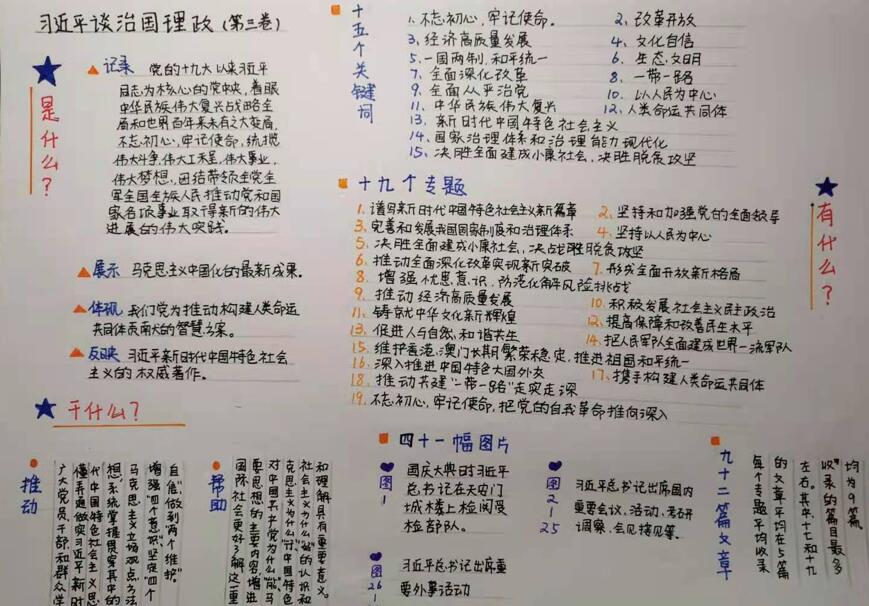 习近平谈治国理政（第三卷）
是什么？
记录 党的十九大以来习近平
同志为核心的党中央，着眼
中华民族伟大复兴战略全
局和世界百年来未有之大变局，
不忘初心，牢记使命，统揽
伟大斗争，伟大工程，伟大事业，
伟大梦想，团结带领全党全
军全国全族人民推动党和国
家各项事业取得新的伟大
进展的伟大实践。
展示 马克思主义中国化的最新成果。
体现 我们党为推动构建人类命运
共同体贡献的智慧方案。
反映 习近平新时代中国特色社会
主义的权威著作。
十五个关键词
1、不忘初心，牢记使命。 2、改革开放
3、经济高质量发展 4、文化自信
5、一国两制，和平统一 6、生态文明
7、全面深化改革 8、一带一路
9、全面从严治党 10、以人民为中心
11、中华民族伟大复兴 12、人类命运共同体
13、新时代中国特色社会主义
14、国家治理体系和治理能力现代化
15、决胜全面建成小康社会，决胜脱贫攻坚
十九个专题
有什么？
1、谱写新时代中国特色社会主义新篇章 2、坚持和加强党的全面领导
3、完善和发展我国国家制度和治理体系 4、坚持以人民为中心
5、决胜全面建成小康社会，决战脱贫攻坚
6、推动全面深化改革实现新突破 7、形成全面开放新格局
8、增强忧患意识，防范化解风险挑战
9、推动经济高质量发展 10、积极发展社会主义民主政治
11、铸就中华文化新辉煌 12、提高保障和改善民生水平
13、促进人与自然，和谐共生 14、把人民军队全面建成世界一流军队
15、维护香港、澳门长期繁荣稳定，推进祖国和平统一
16、深入推进中国特色大国外交 17、携手构建人类命运共同体
18、推动共建“一带一路”走实走深
19、不忘初心，牢记使命，把党的自我革命推向深入
干什么？
推动
广大党员、干部和群众学
懂弄通做实习近平新时
代中国特色社会主义思
想，系统掌握贯穿其中的
马克思主义立场观点方法
增强“四个意识”，坚定“四个
自信”，做到“两个维护”。
帮助
国际社会更好了解这一重
要思想的主要内容，增进
对中国共产党为什么“能”，马
克思主义为什么“行”，中国特色
社会主义为什么“好”的认识和
和理解具有重要意义。
四十一幅图片
图1
国庆大典时习近平
总书记在天安门
城楼上检阅受
检部队。
图2-25
习近平总书记出席国内
重要会议，活动，考研
调察，会见接见等。
图26-
习近平总书记出席重
要外事活动
九十二篇文章
每个专题平均收录
的文章平均在5篇
左右。其中，十七和十九
收录的篇目最多
均为9篇。